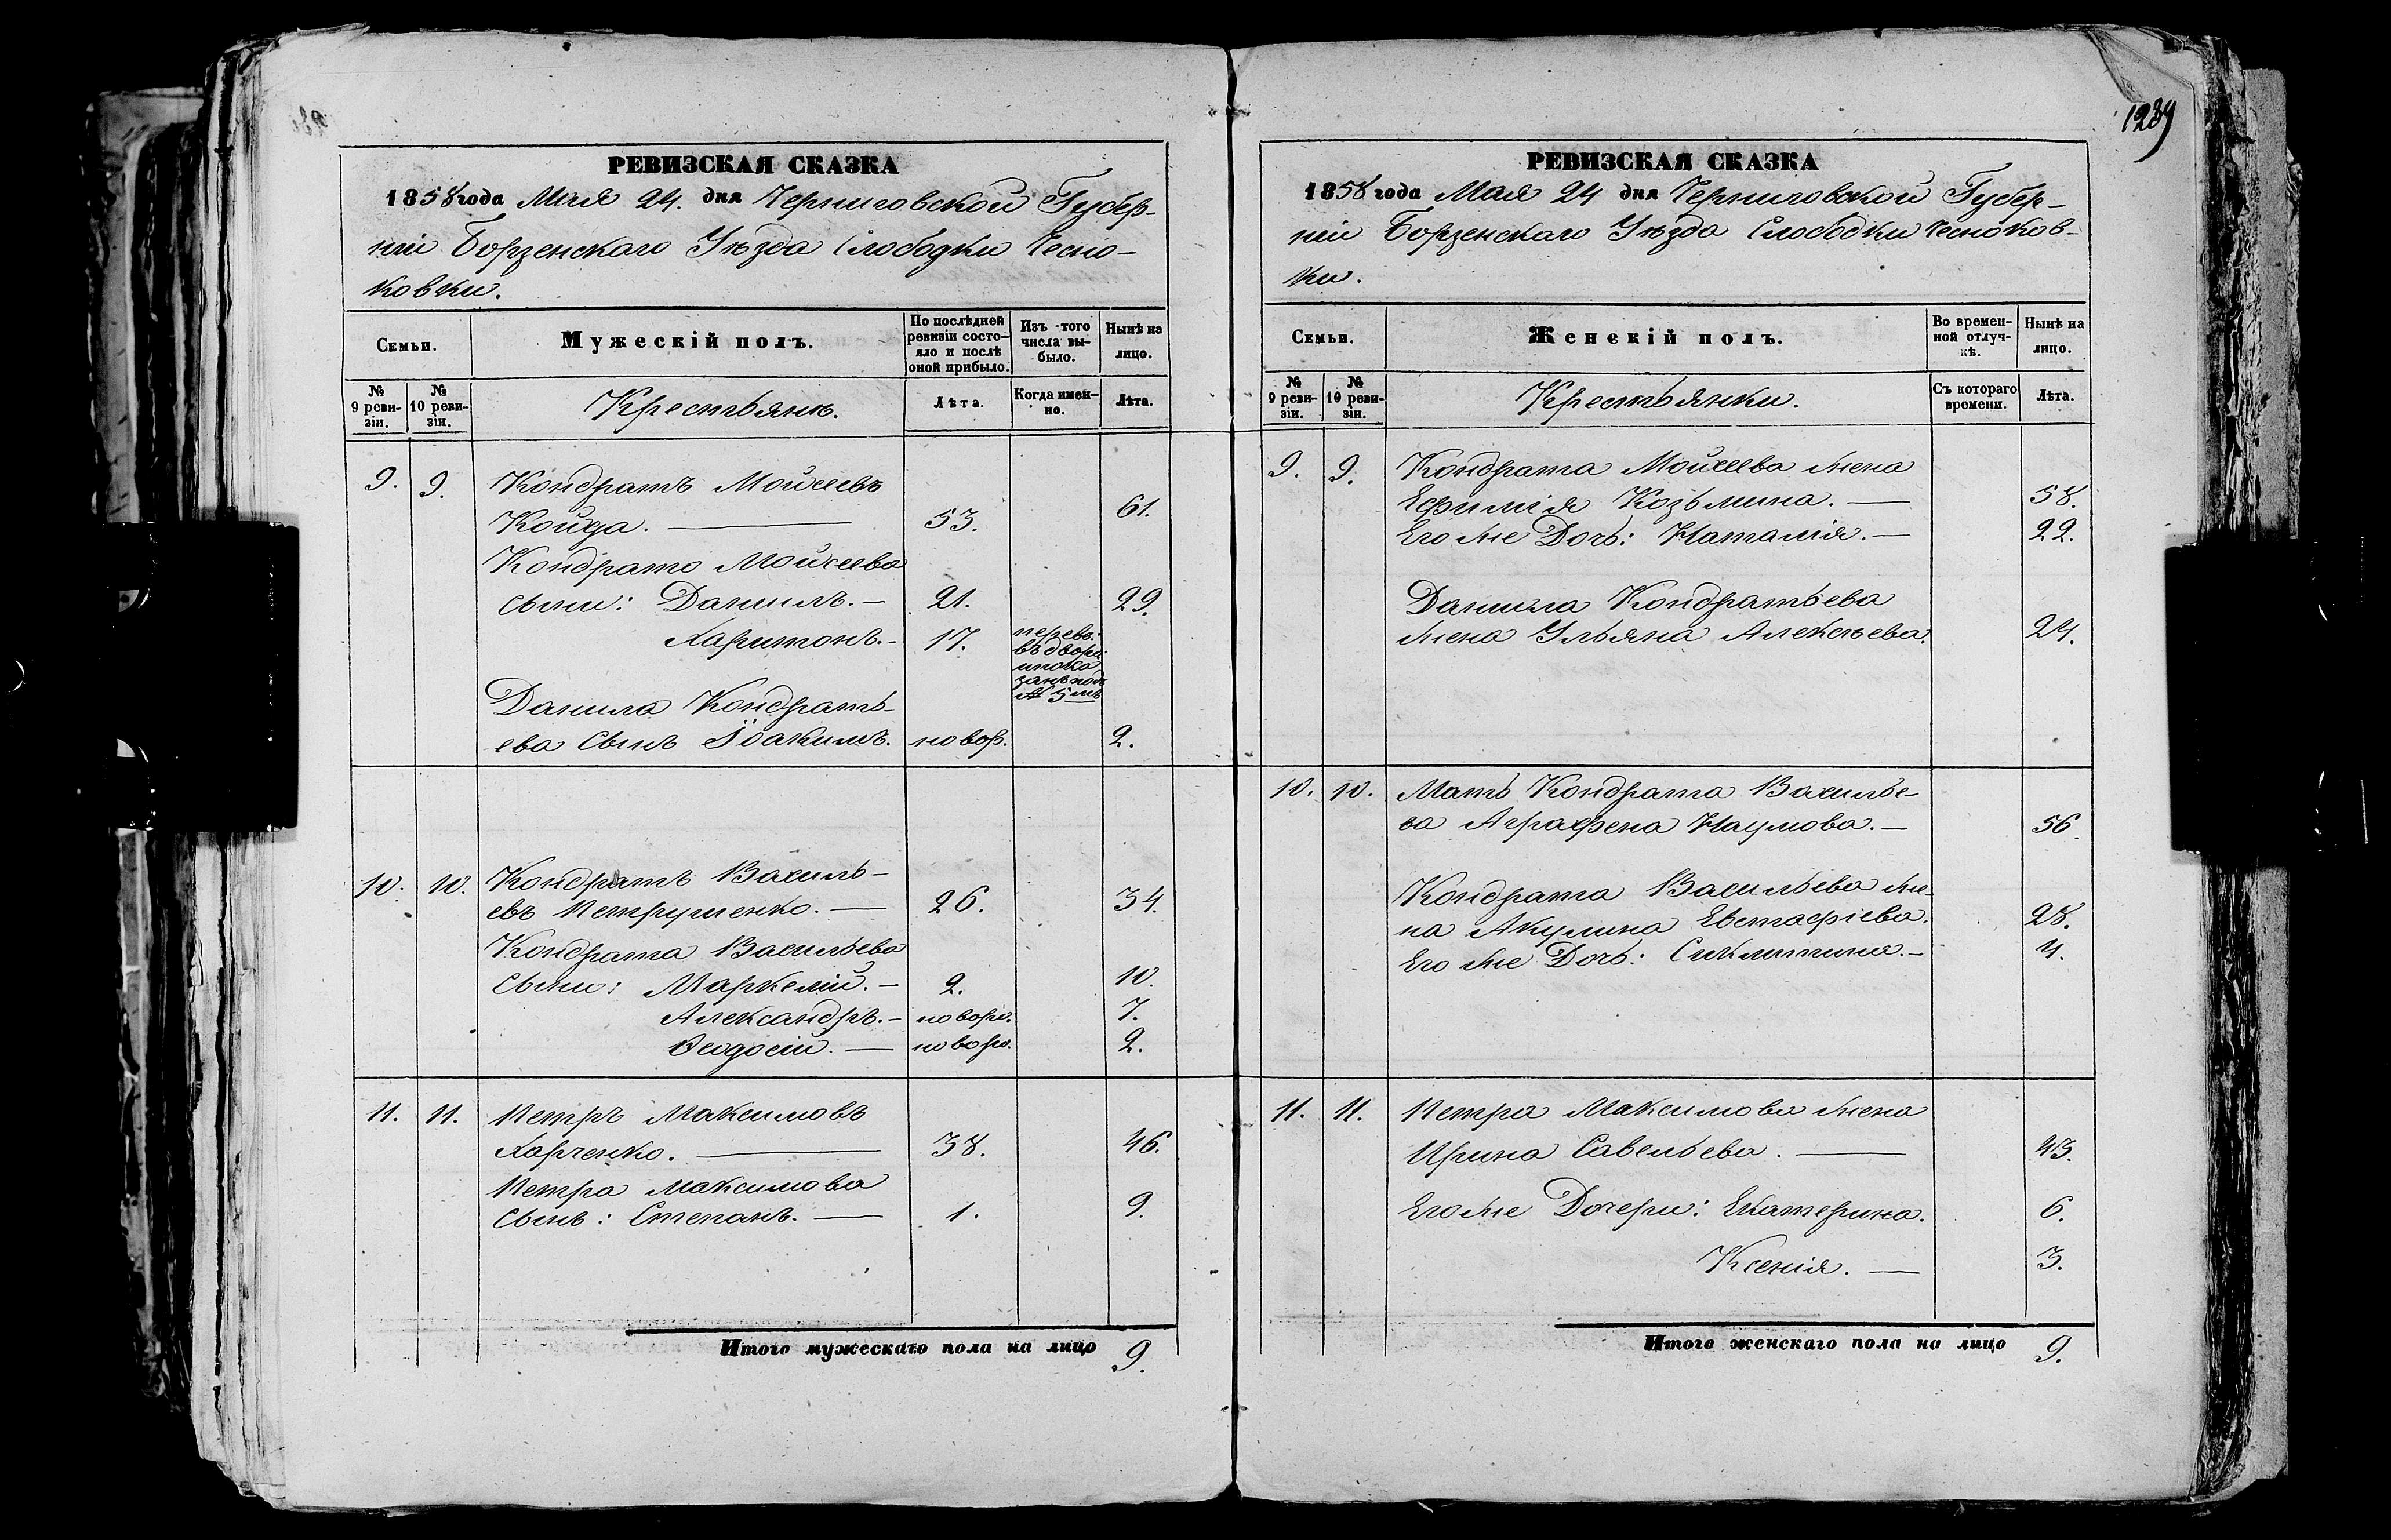 РЕВИЗСКАЯ СКАЗКА
1858 года Мая 24. дня Черниговской Губер-
ніи Борзенскаго Уѣзда Слободки Чесно-
ковки.
Семьи.
Мужескій полъ.
По послѣдней ревизіи состо-яло и послѣ оной прибыло.
Изъ того числа вы-было.
Нынѣ на лицо.
№ 9 реви-зіи.
№ 10 реви-зіи.
Крестьянъ.
Лѣта.
Когда имен-но.
Лѣта.
9. 9. Кондратъ Мойсеевъ
Койда. — 53. 61.
Кондрата Мойсеева
сыни: Данилъ. — 21. 29.
Харитонъ. — 17. перевед.
въ двор.
и пока
занъ подъ
№ 5 мъ
Данила Кондрать-
ева Сынъ Іоакимъ. новор. 2.
10. 10. Кондратъ Василь-
евъ Петрушенко. — 26. 34.
Кондрата Васильева
Сыни: Маркелій. — 2. 10.
Александръ. — новоро. 7.
Ѳеодосій. — новоро. 2.
11. 11. Петръ Максимовъ
Харченко. — 38. 46.
Петра Максимова
Сынъ: Степанъ. — 1. 9.
Итого мужескаго пола на лицо 9.
1239
РЕВИЗСКАЯ СКАЗКА
1858 года Мая 24 дня Черниговской Губер-
ніи Борзенскаго Уѣзда Слободки Чесноков-
ки.
Семьи.
Женскій полъ.
Во времен-ной отлуч-кѣ.
Нынѣ на лицо.
№ 9 реви-зіи.
№ 10 реви-зіи.
Крестьянки.
Съ котораго времени.
Лѣта.
9. 9. Кондрата Мойсеева жена
Ефимія Козьмина. — 58.
Его же Дочь: Наталія. — 22.
Данила Кондратьева
жена Ульяна Алексѣева. 24.
10. 10. Мать Кондрата Василье-
ва Аграфена Наумова. — 56.
Кондрата Васильева же-
на Акулина Евстафіева. 28.
Его же Дочь: Сиклитина. — 4.
11. 11. Петра Максимова жена
Ирина Савельева. — 43.
Его же Дочери: Екатерина. 6.
Ксенія. — 3.
Итого женскаго пола на лицо 9.